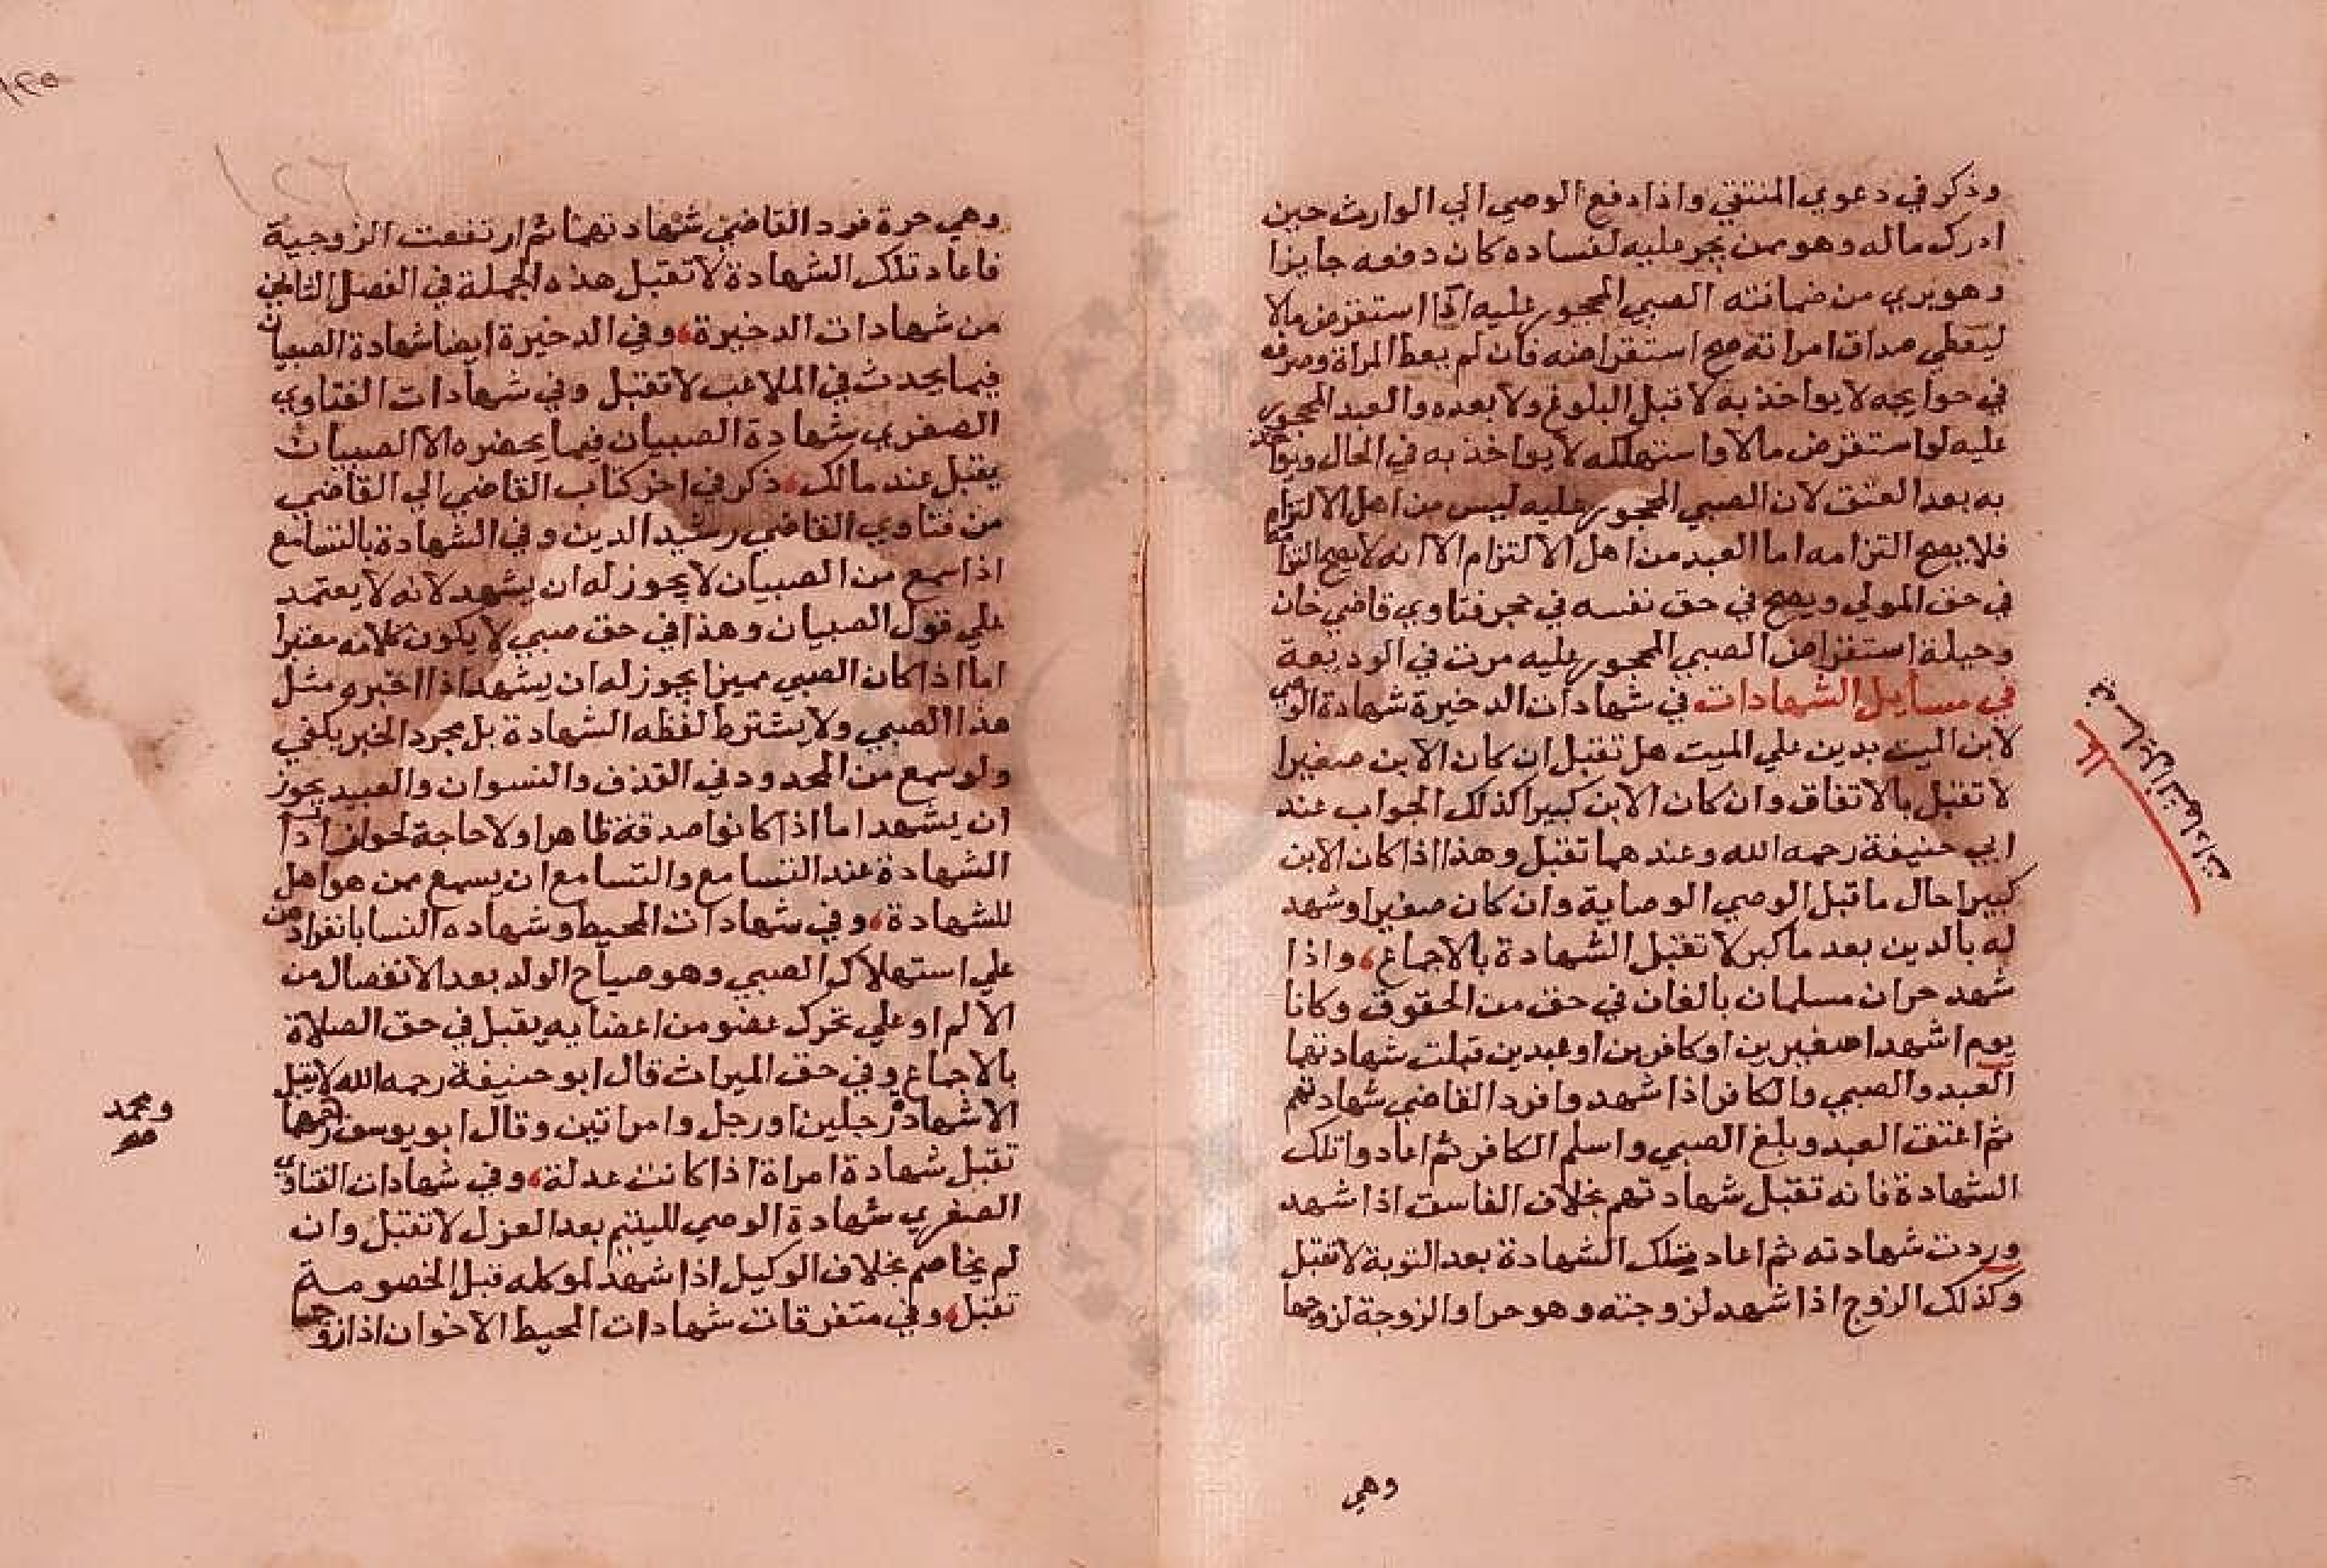 وذكر في دعوي المنتقي واذا دفع الوصي الي الوارث حين
ادرك ماله وهو ممن يحجر عليه لفساده كان دفعه جايزا
وهو بري من ضمانته الصبي المحجور عليه اذا استقرض مالا
ليعطي صداق امراته صح استقراضه فان لم يعط المراة وصرفه
في حوايجه لا يواخذ به لا قبل البلوغ ولا بعده والعبد المحجور
عليه لو استقرض مالا واستهلكه لا يواخذ به في الحال ويواخذ
به بعد العتق لان الصبي المحجور عليه ليس من اهل الالتزام
فلا يصح التزامه اما العبد من اهل الالتزام الا انه لا يصح التزامه
في حق المولي ويصح في حق نفسه في حجر فتاوي قاضي خان
وحيلة استقراض الصبي المحجور عليه مرت في الوديعة
في مسايل الشهادات في شهادات الدخيرة شهادة الوصي
لابن الميت بدين علي الميت هل تقبل ان كان الابن صغيرا
لا تقبل بالاتفاق وان كان الابن كبيرا كذلك الجواب عند
ابي حنيفة رحمه الله وعندهما تقبل وهذا اذا كان الابن
كبيرا حال ما قبل الوصي الوصاية وان كان صغيرا وشهد
له بالدين بعد ما كبر لا تقبل الشهادة بالاجماع، واذا
شهد حران مسلمان بالغان في حق من الحقوق وكانا
يوم اشهدا صغيرين او كافرين او عبدين قبلت شهادتهما
العبد والصبي والكافر اذا شهدوا فرد القاضي شهادتهم
ثم اعتق العبد وبلغ الصبي واسلم الكافر ثم اعادوا تلك
الشهادة فانه تقبل شهادتهم بخلاف الفاسق اذا شهد
وردت شهادته ثم اعاد تلك الشهادة بعد التوبة لا تقبل
وكذلك الزوج اذا شهد لزوجته وهو حر او الزوجة لزوجها
وهي
في مسايل الشهادات
١٢٦
وهي حرة فرد القاضي شهادتهما ثم ارتفعت الزوجية
فاعاد تلك الشهادة لا تقبل هذه الجملة في الفصل الثاني
من شهادات الدخيرة، وفي الدخيرة ايضا شهادة الصبيان
فيما يحدث في الملاعب لا تقبل وفي شهادات الفتاوي
الصغري شهادة الصبيان فيما يحضره الا الصبيان
يقبل عند مالك، ذكر في اخر كتاب القاضي الي القاضي
من فتاوي القاضي رشيد الدين وفي الشهادة بالتسامع
اذا سمع من الصبيان لا يجوز له ان يشهد لانه لا يعتمد
علي قول الصبيان وهذا في حق صبي لا يكون كلامه معتبرا
اما اذا كان الصبي مميزا يجوز له ان يشهد اذا اخبره مثل
هذا الصبي ولا يشترط لفظه الشهادة بل مجرد الخبر يكفي
ولو سمع من المحدود في القذف والنسوان والعبيد يجوز
ان يشهد اما اذا كانوا صدقة ظاهرا ولا حاجة لجواز ادا
الشهادة عند التسامع والتسامع ان يسمع ممن هو اهل
للشهادة، وفي شهادات المحيط وشهاده النسا بانفرادهن
علي استهلاك الصبي وهو صياح الولد بعد الانفصال من
الالم او علي تحرك عضو من اعضايه يقبل في حق الصلاة
بالاجماع وفي حق الميراث قال ابو حنيفة رحمه الله لا يقبل
الا شهادة رجلين او رجل وامراتين وقال ابو يوسف رحمهما
ومحمد
تقبل شهادة امراة اذا كانت عدلة، وفي شهادات الفتاوي
الصغري شهادة الوصي لليتيم بعد العزل لا تقبل وان
لم يخاصم بخلاف الوكيل اذا شهد لموكله قبل الخصومة
تقبل، وفي متفرقات شهادات المحيط الاخوان اذا زوجا